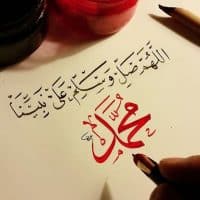 اللَّهُمَّ صَلِّ وَسَلِّمْ عَلَىٰ نَبِيِّنَا
مُحَمَّد